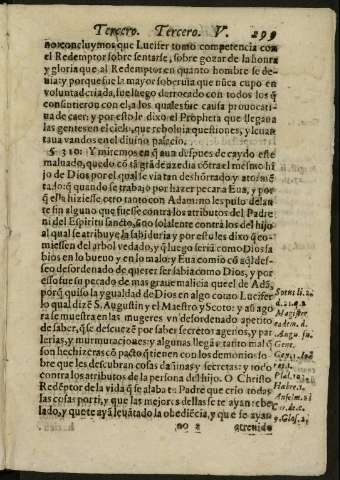 Tercero. Tercero. V. 299
no: concluymos que Lucifer tomo competencia con
el Redemptor sobre sentarse, sobre gozar de la honra
y gloria que al Redemptor en quanto hombre se de-
uia: y porque fue la mayor soberuia que nũca cupo en
voluntad criada, fue luego derrocado con todos los q̃
consintieron con el, a los quales fue causa prouocati-
ua de caer: y por esto le dixo el Propheta que llegaua
las gentes en el cielo, que reboluia questiones, y leuan
taua vandos en el diuino palacio.
§ 310: Y miremos en q̃ aun despues de caydo este
maluado, quedo cõ sãgria de azedia cõtra el mesmo hi
jo de Dios por el qual se via tan deshõrrado y atormẽ
tado: q̃ quando se trabajo por hazer pecar a Eua, y por
q̃ ella hiziesse otro tanto con Adam: no les puso delan
te fin alguno que fuesse contra los atributos del Padre
ni del Espiritu sancto, sino solamente contra los del hijo
al qual se atribuye la sabiduria y por esto les dixo q̃ co-
miessen del arbol vedado, y q̃ luego seriã como Dios sa
bios en lo bueno y en lo malo: y Eua comio cõ aq̃l des-
seo desordenado de querer ser sabia como Dios, y por
esso fue su pecado de mas graue malicia que el de Adã,
porq̃ quiso la ygualdad de Dios en algo como Lucifer
lo qual dizẽ S. Augustin y el Maestro y Scoto: y assi ago
ra se muestra en las mugeres vn desordenado apetito
de saber, q̃ se descuezẽ por saber secretos agenos, y par
lerias, y murmuraciones: y algunas llegã a tanto mal q̃
son hechizeras cõ pacto q̃ tienen con los demonios so-
bre que les descubran cosas dañinas y secretas: y todo
contra los atributos de la persona del Hijo. O Christo
Redẽptor de la vida q̃ se alaba tu Padre que crio todas
las cosas por ti, y que las mejores dellas se te ayan rebe
lado, y que te ayã leuãtado la obediẽcia, y que se ayan
no 2 atreuido
Scotus li. 2.
d. 21. q. 2
Magister
eadem. d.
Augu. su.
Gene.
Psal.
Habac. 1.
Anselm. li
Cur. de. c.
9. Glos. 2.